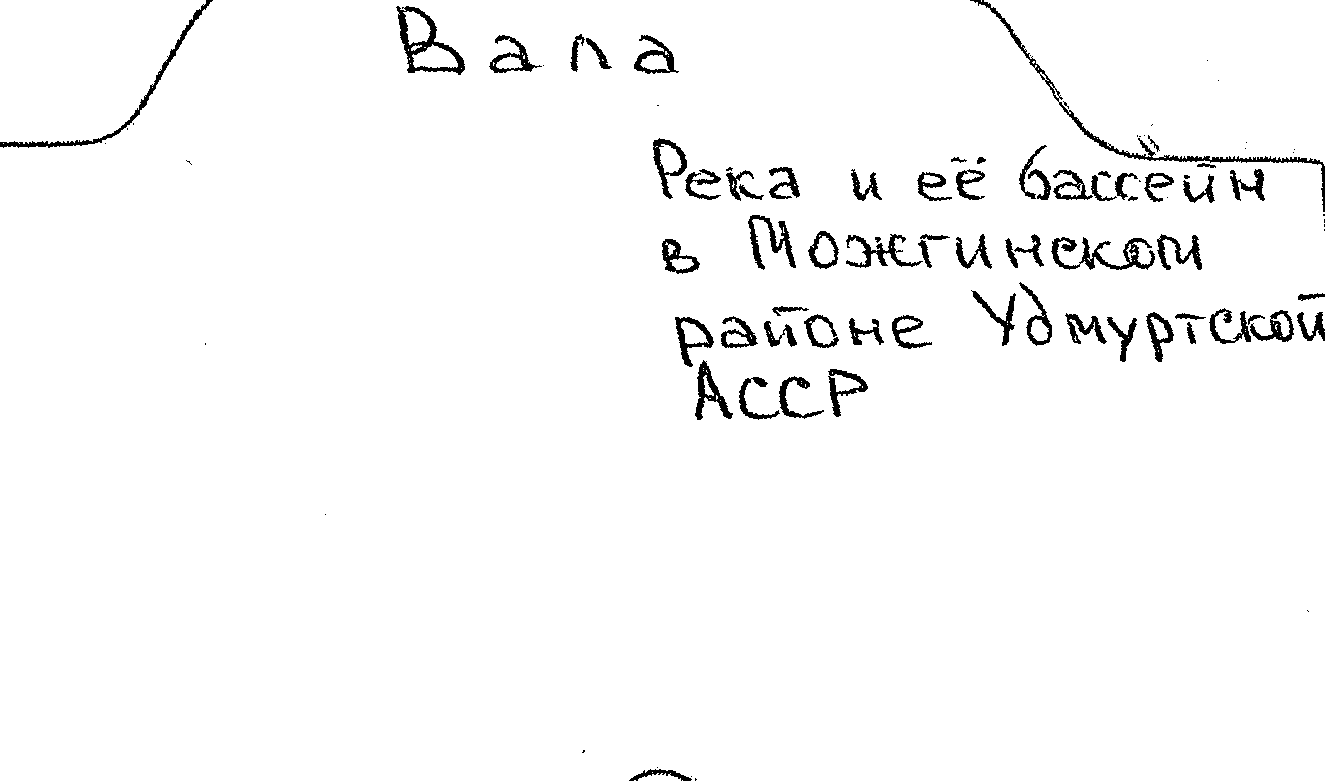 Вала
Река и её бассейн
в Можгинском
районе Удмуртской
АССР